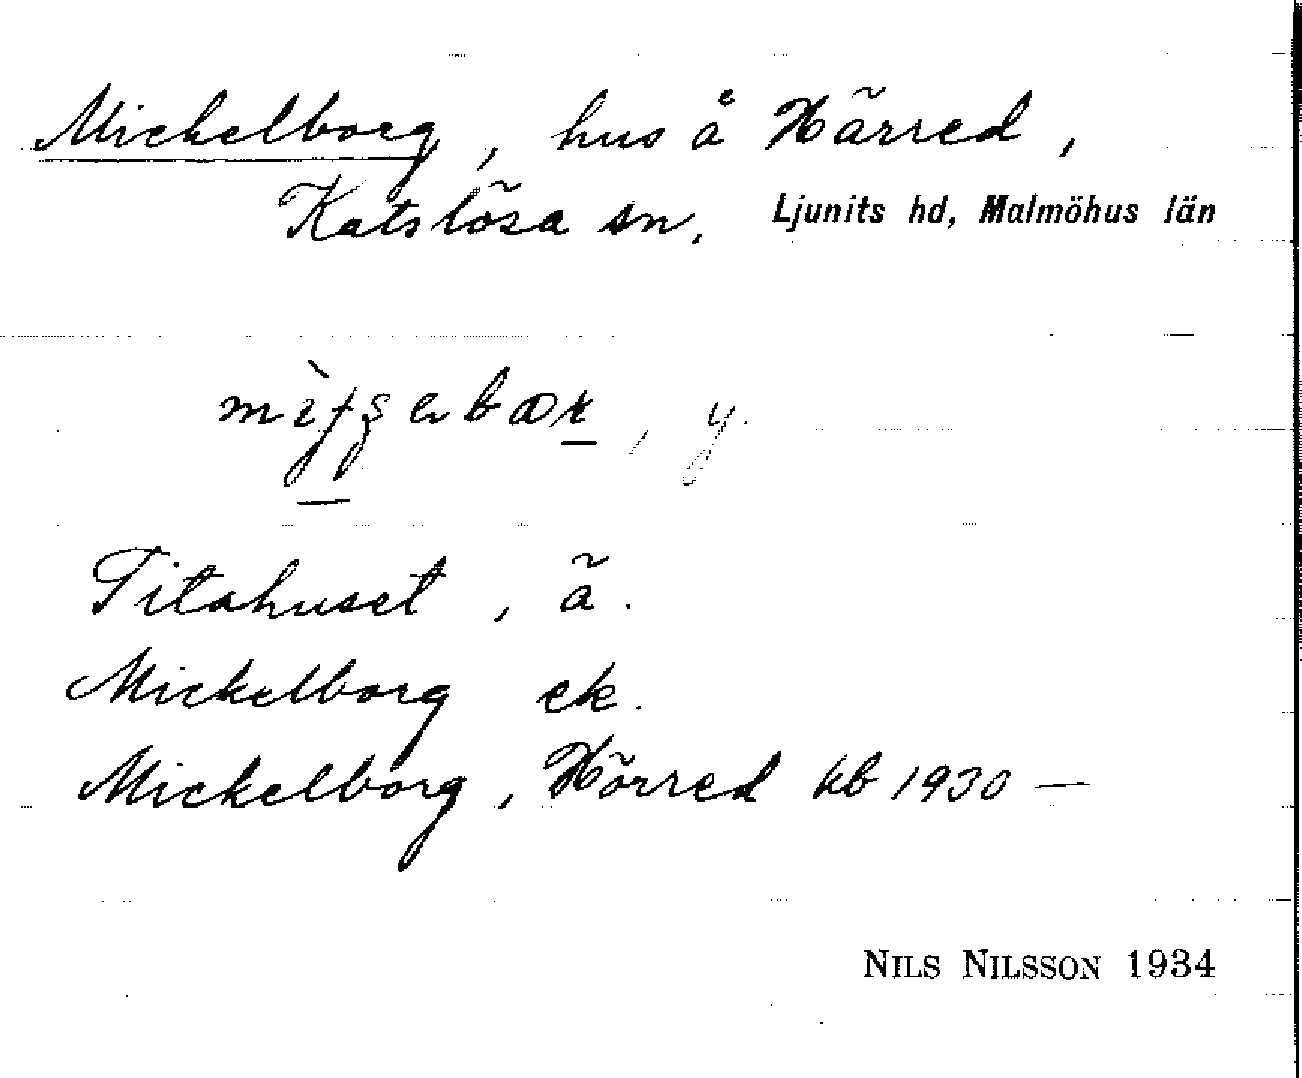 Mickelborg, hus å Härred,
Katslösa sn. Ljunits hd, Malmöhus län
y.
Titahuset, ä.
Mickelborg ek.
Mickelborg, Hörred kb 1930 —
NILS NILSSON 1934